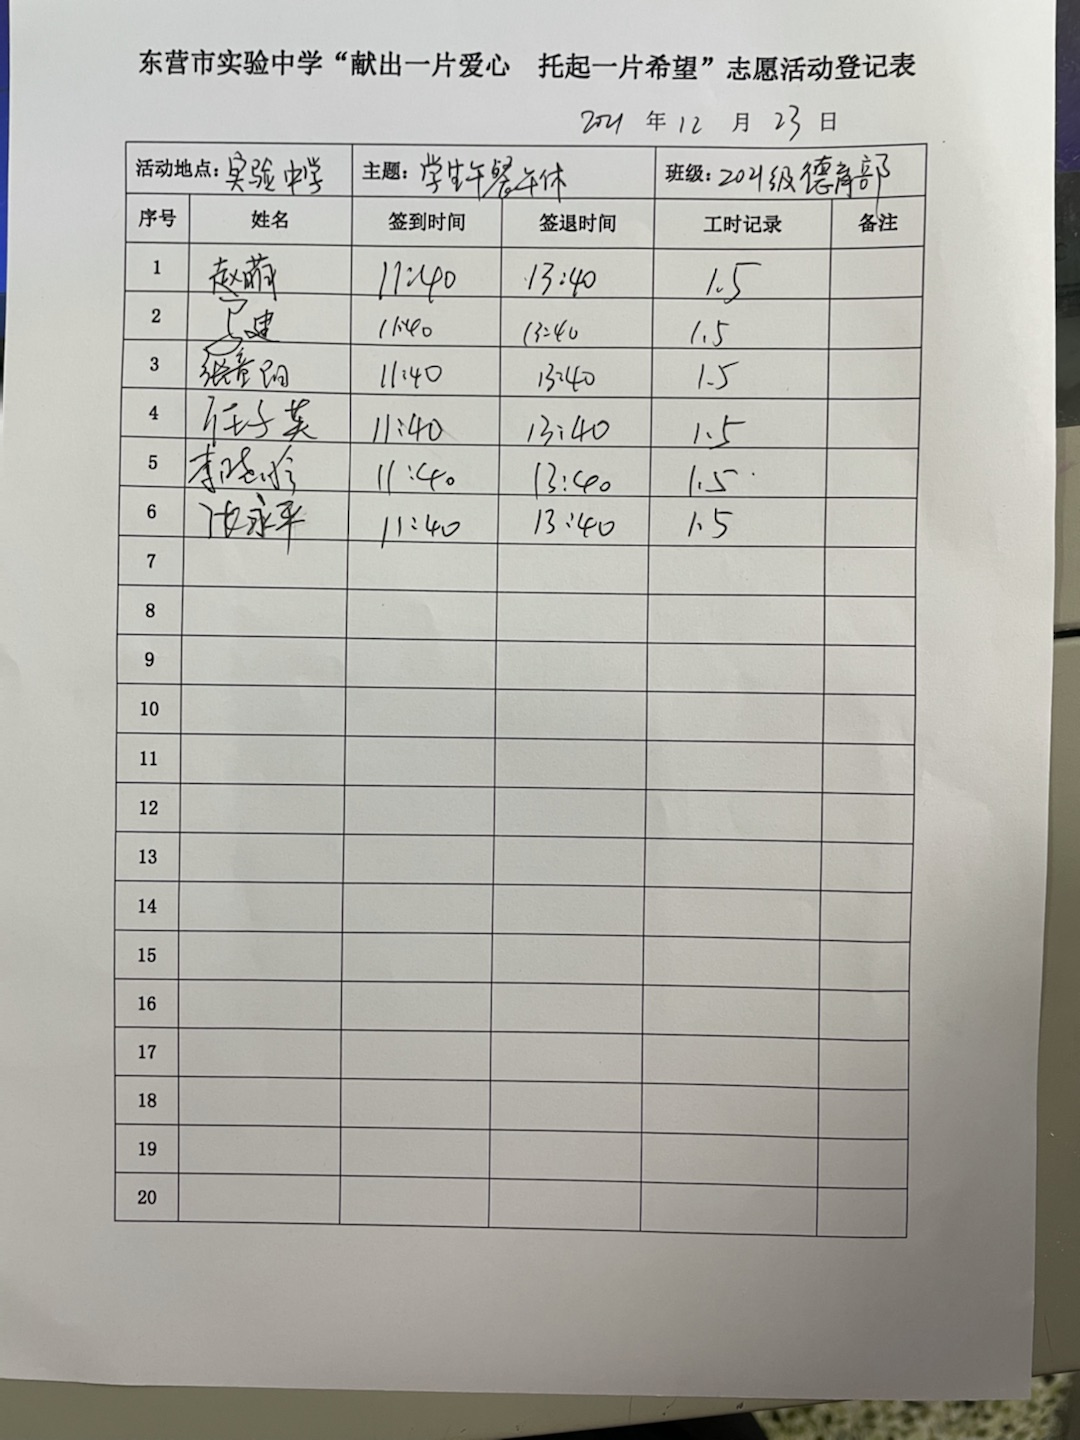 东营市实验中学“献出一片爱心 托起一片希望”志愿活动登记表
2021 年 12 月 23 日
活动地点：实验中学 主题：学生午餐午休 班级：2021级德育部
序号 姓名 签到时间 签退时间 工时记录 备注
1 赵萌 11:40 13:40 1.5
2 建 11:40 13:40 1.5
3 张童阳 11:40 13:40 1.5
4 任子英 11:40 13:40 1.5
5 李晓玲 11:40 13:40 1.5
6 张永平 11:40 13:40 1.5
7
8
9
10
11
12
13
14
15
16
17
18
19
20